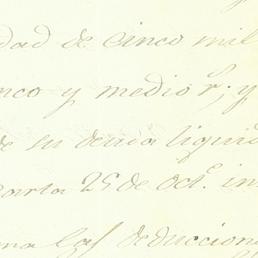 dad de cinco mil
nco y medio r; y
de su deuda liquid
Carta 25 de oct. in
las deduccion